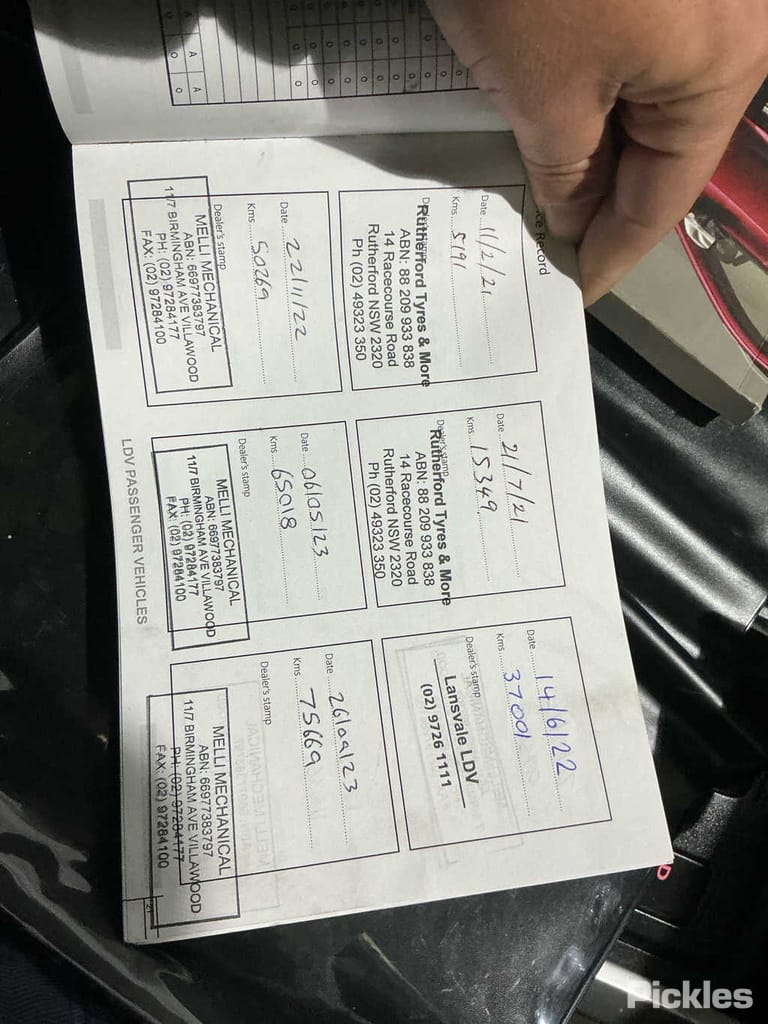 ce Record
Date 11/2/21
Kms 5191
Rutherford Tyres & More
ABN: 88 209 933 838
14 Racecourse Road
Rutherford NSW 2320
Ph (02) 49323 350
Date 21/7/21
Kms 15349
Dealer's stamp
Rutherford Tyres & More
ABN: 88 209 933 838
14 Racecourse Road
Rutherford NSW 2320
Ph (02) 49323 350
Date 14/6/22
Kms 37001
Dealer's stamp
Lansvale LDV
(02) 9726 1111
Date 22/11/22
Kms 50269
Dealer's stamp
MELLI MECHANICAL
ABN: 66977383797
11/7 BIRMINGHAM AVE VILLAWOOD
PH: (02) 97284177
FAX: (02) 97284100
Date 06/05/23
Kms 65018
Dealer's stamp
MELLI MECHANICAL
ABN: 66977383797
11/7 BIRMINGHAM AVE VILLAWOOD
PH: (02) 97284177
FAX: (02) 97284100
Date 26/09/23
Kms 75669
Dealer's stamp
MELLI MECHANICAL
ABN: 66977383797
11/7 BIRMINGHAM AVE VILLAWOOD
PH: (02) 97284177
FAX: (02) 97284100
LDV PASSENGER VEHICLES
21
Pickles